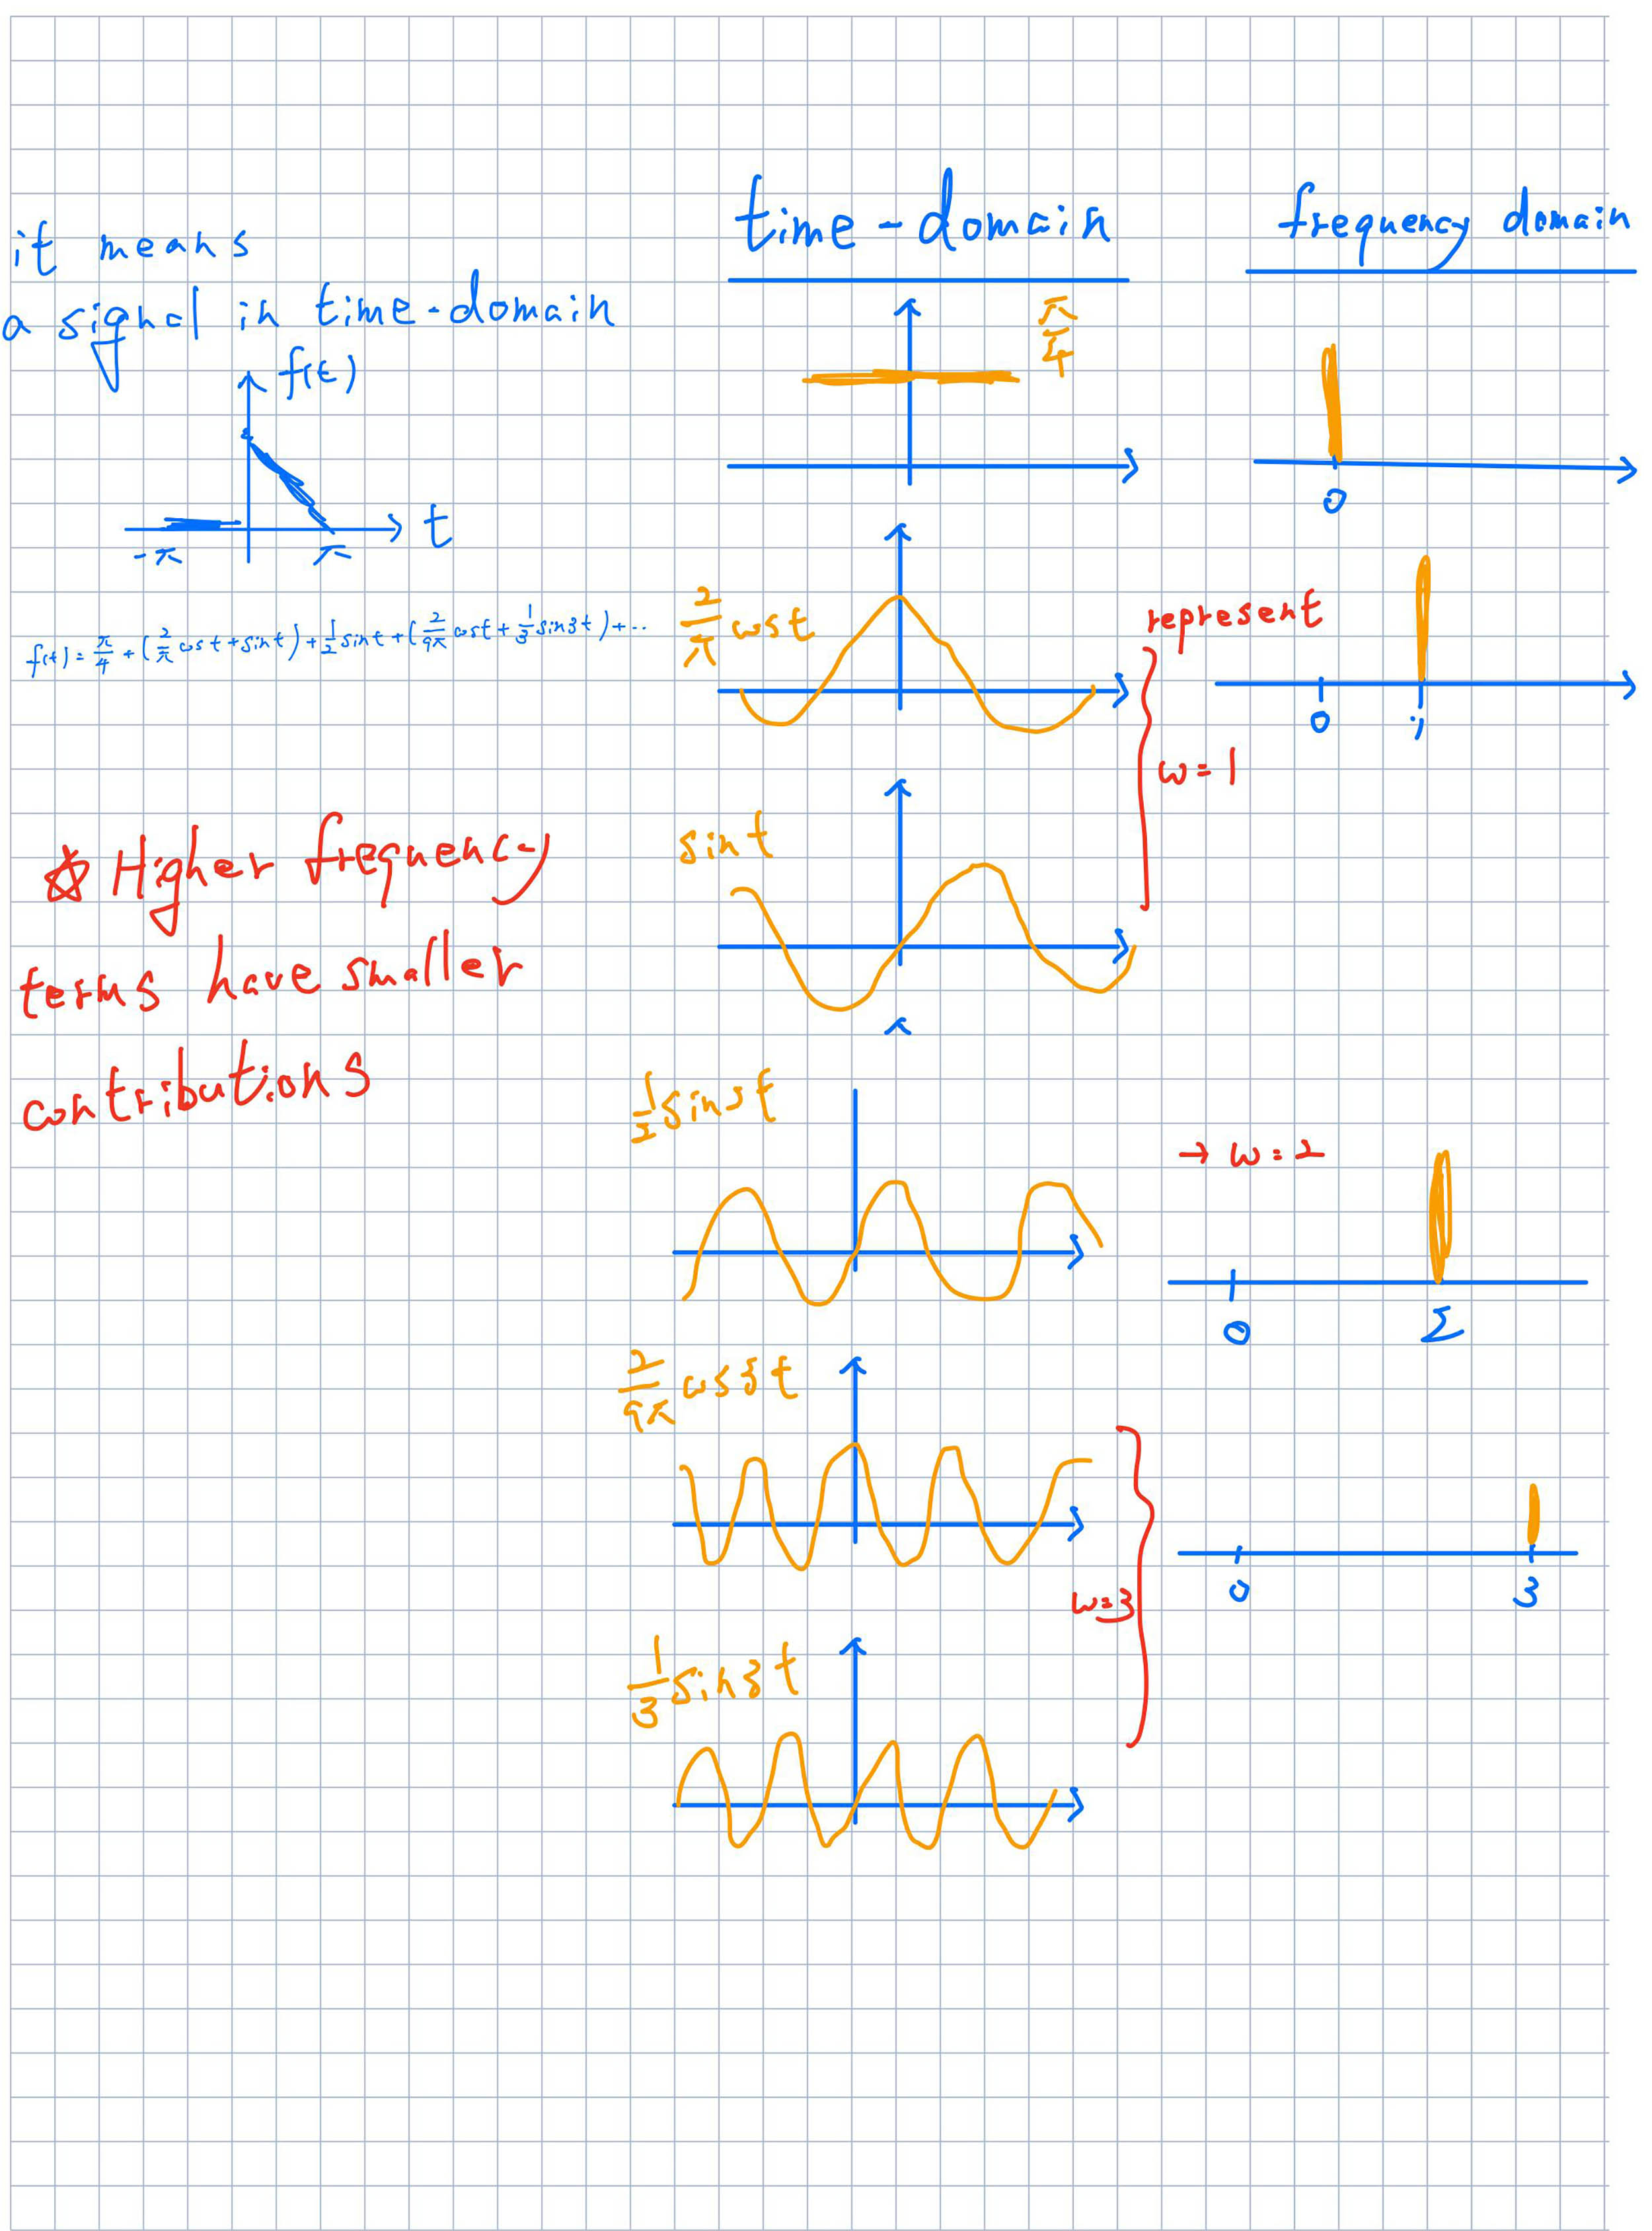 it means
a signal in time-domain
f(t)
t
-π
π
f(t) = π/4 + (2/π cos t + sin t) + 1/2 sin t + (2/9π cos t + 1/3 sin 3t) + ...
☆ Higher frequency
terms have smaller
contributions
time-domain
π/4
2/π cos t
sin t
2/9π cos 3t
1/3 sin 3t
represent
ω=1
→ ω=2
ω=3
frequency domain
0
0
1
0
2
0
3